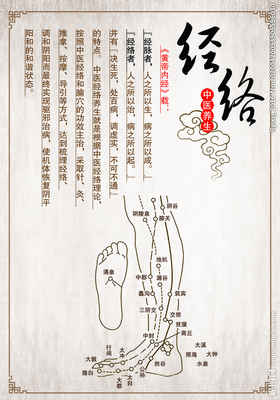 经络
中医养生
《黄帝内经》载：
『经脉者，人之所以生，病之所以成。
『经络者，人之所以治，病之所以起。
并有『决生死，处百病，调虚实，不可不通』
的特点。中医经络养生就是根据中医经络理论，
按照中医经络和腧穴的功效主治，采取针、灸、
推拿、按摩、导引等方式，达到梳理经络、
调和阴阳而最终实现驱邪治病，使机体恢复阴平
阳和的和谐状态。
阴谷
阴陵泉
膝关
地机
中都
漏谷
蠡沟
筑宾
三阴交
交信
复溜
商丘
中封
太溪
照海
大钟
水泉
然谷
公孙
太白
大都
隐白
大敦
行间
太冲
涌泉